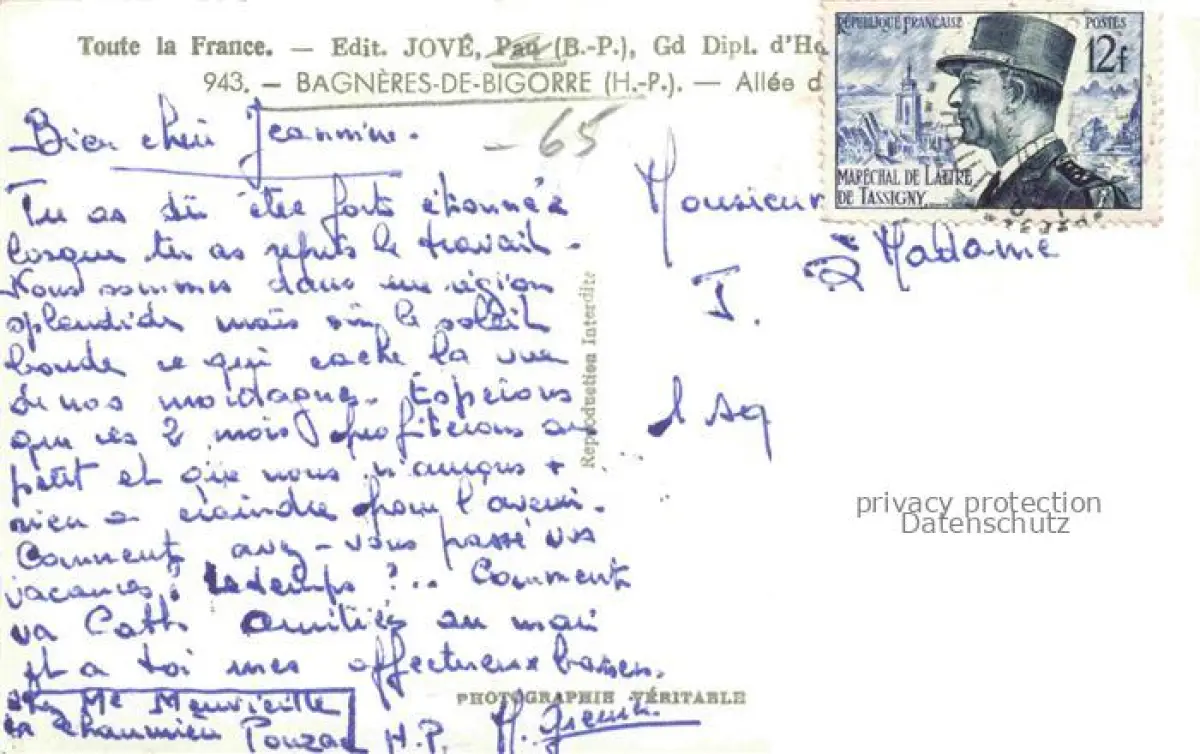 Toute la France. — Edit. JOVÉ, Pau (B.-P.), Gd Dipl. d'Ho
943. — BAGNÈRES-DE-BIGORRE (H.-P.). — Allée d
-65
RÉPUBLIQUE FRANÇAISE POSTES
12f
MARÉCHAL DE LATTRE
DE TASSIGNY
Bien cher Jeannine.
Tu as dû être forte étonnée
lorsque tu as repris le travail.
Nous sommes dans une région
splendide mais où le soleil
boude ce qui cache la vue
de nos montagnes. Espérons
que ces 2 mois profiterons au
petit et que nous n'aurons +
rien a craindre pour l'avenir.
Comment avez-vous passé vos
vacances, le temps ?.. Comment
va Amitiés au mari
et a toi mes affectueux baisers.
chez Me
Pouzac H.P.
Monsieur
& Madame
J.
Reproduction Interdite
PHOTOGRAPHIE VÉRITABLE
privacy protection
Datenschutz